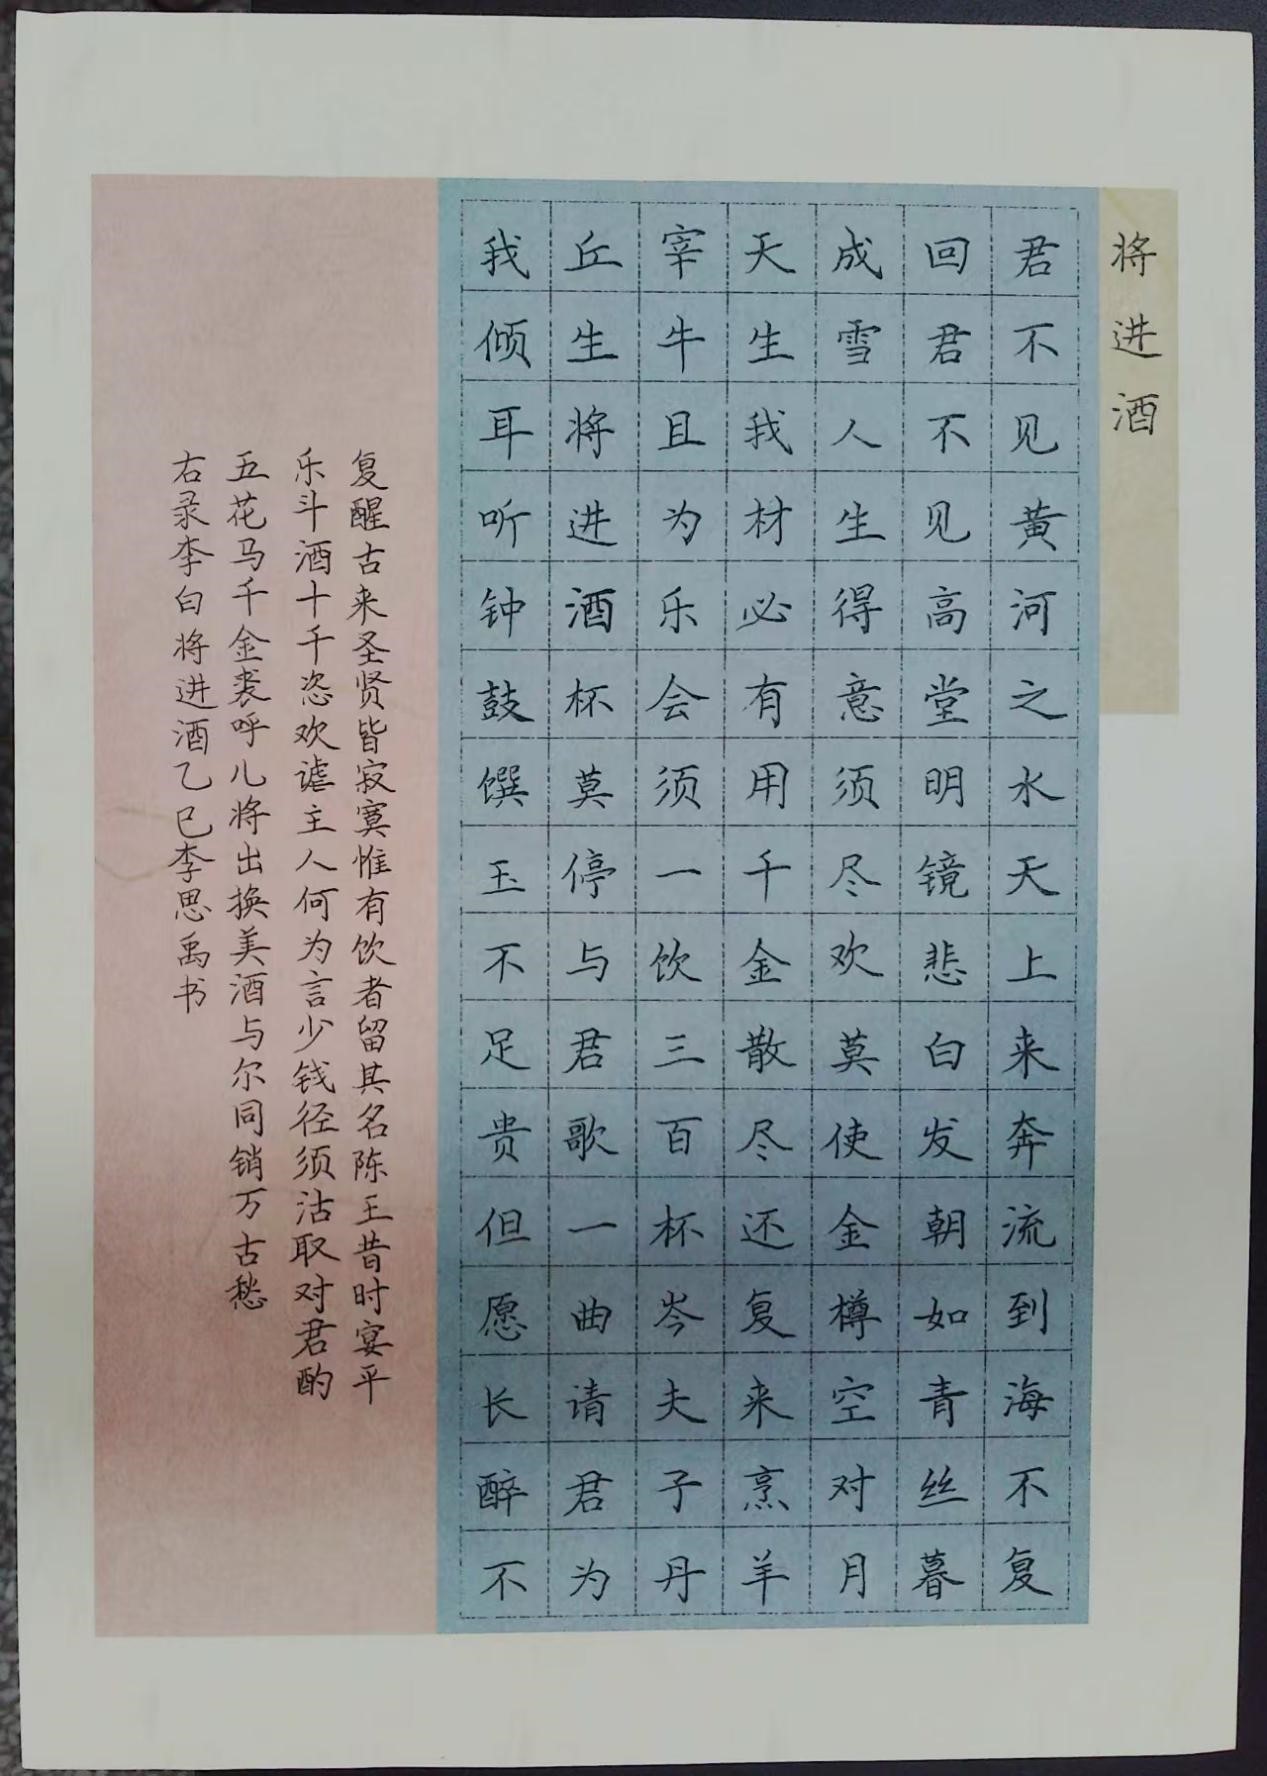 将进酒
君不见黄河之水天上来奔流到海不复
回君不见高堂明镜悲白发朝如青丝暮
成雪人生得意须尽欢莫使金樽空对月
天生我材必有用千金散尽还复来烹羊
宰牛且为乐会须一饮三百杯岑夫子丹
丘生将进酒杯莫停与君歌一曲请君为
我倾耳听钟鼓馔玉不足贵但愿长醉不
复醒古来圣贤皆寂寞惟有饮者留其名陈王昔时宴平
乐斗酒十千恣欢谑主人何为言少钱径须沽取对君酌
五花马千金裘呼儿将出换美酒与尔同销万古愁
右录李白将进酒乙巳李思禹书